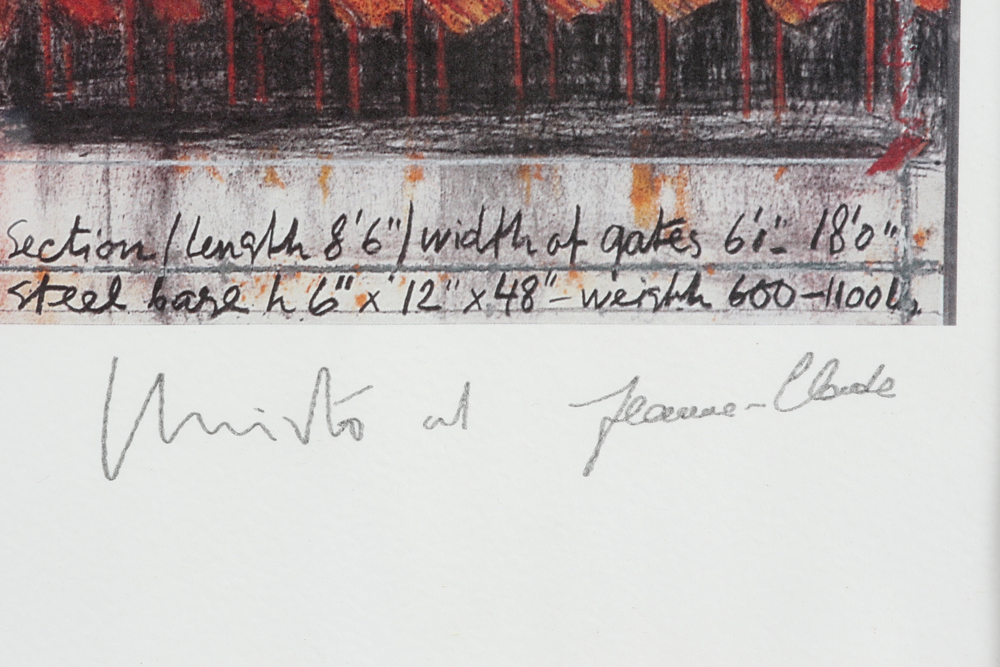 Section / Length 8'6" / width of gates 6'6" - 18'0"
steel base h 6" x 12" x 48" - weight 600-1100lb,
Christo and Jeanne-Claude